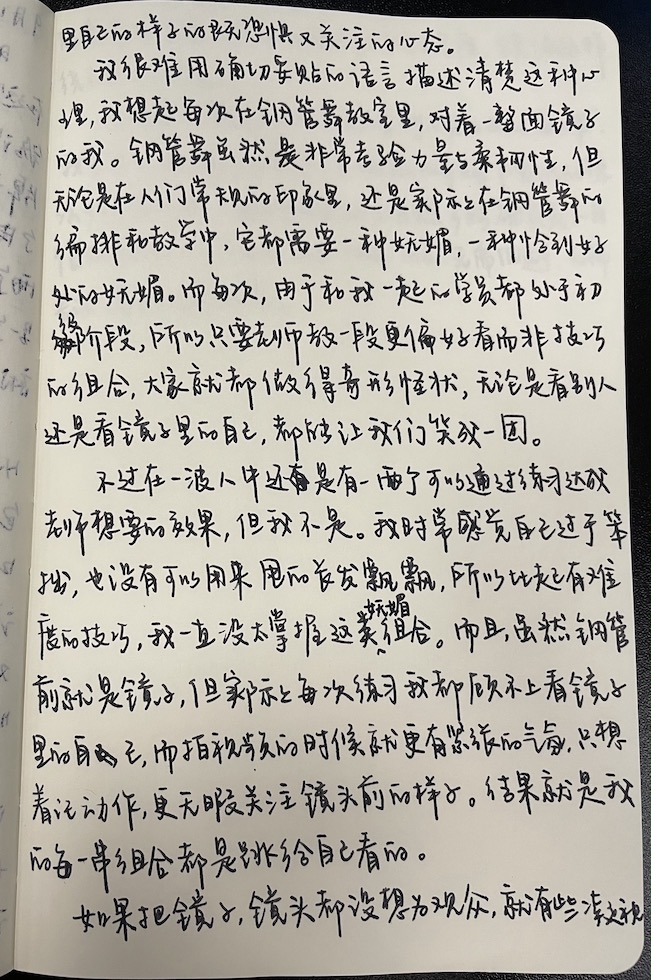 里自己的样子的既恐惧又关注的心态。
我很难用确切妥贴的语言描述清楚这种心
理，我想起每次在钢管舞教室里，对着一整面镜子
的我。钢管舞虽然是非常考验力量与柔韧性，但
无论是在人们常规的印象里，还是实际上在钢管舞的
编排和教学中，它都需要一种妩媚，一种恰到好
处的妩媚。而每次，由于和我一起的学员都处于初
级阶段，所以只要老师教一段更偏好看而非技巧
的组合，大家就都做得奇形怪状，无论是看别人
还是看镜子里的自己，都能让我们笑成一团。
不过在一波人中还是有一两个可以通过练习达成
老师想要的效果，但我不是。我时常感觉自己过于笨
拙，也没有可以用来甩的长发飘飘，所以比起有难
度的技巧，我一直没太掌握这类妩媚组合。而且，虽然钢管
前就是镜子，但实际上每次练习我都顾不上看镜子
里的自己，而拍视频的时候就更有紧张的气氛，只想
着记动作，更无暇关注镜头前的样子。结果就是我
的每一串组合都是跳给自己看的。
如果把镜子，镜头都设想为观众，就有些凌